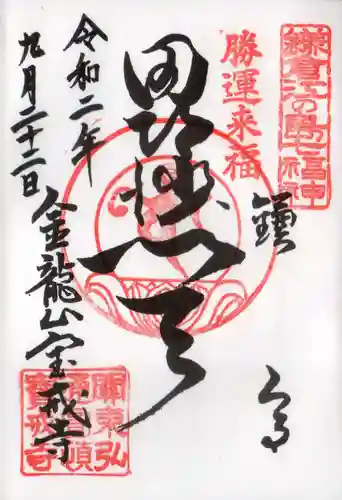 鎌倉江の島七福神
勝運来福
鎌倉
毘沙門天
令和二年
九月二十二日
金龍山宝戒寺
關東弘
寶戒寺